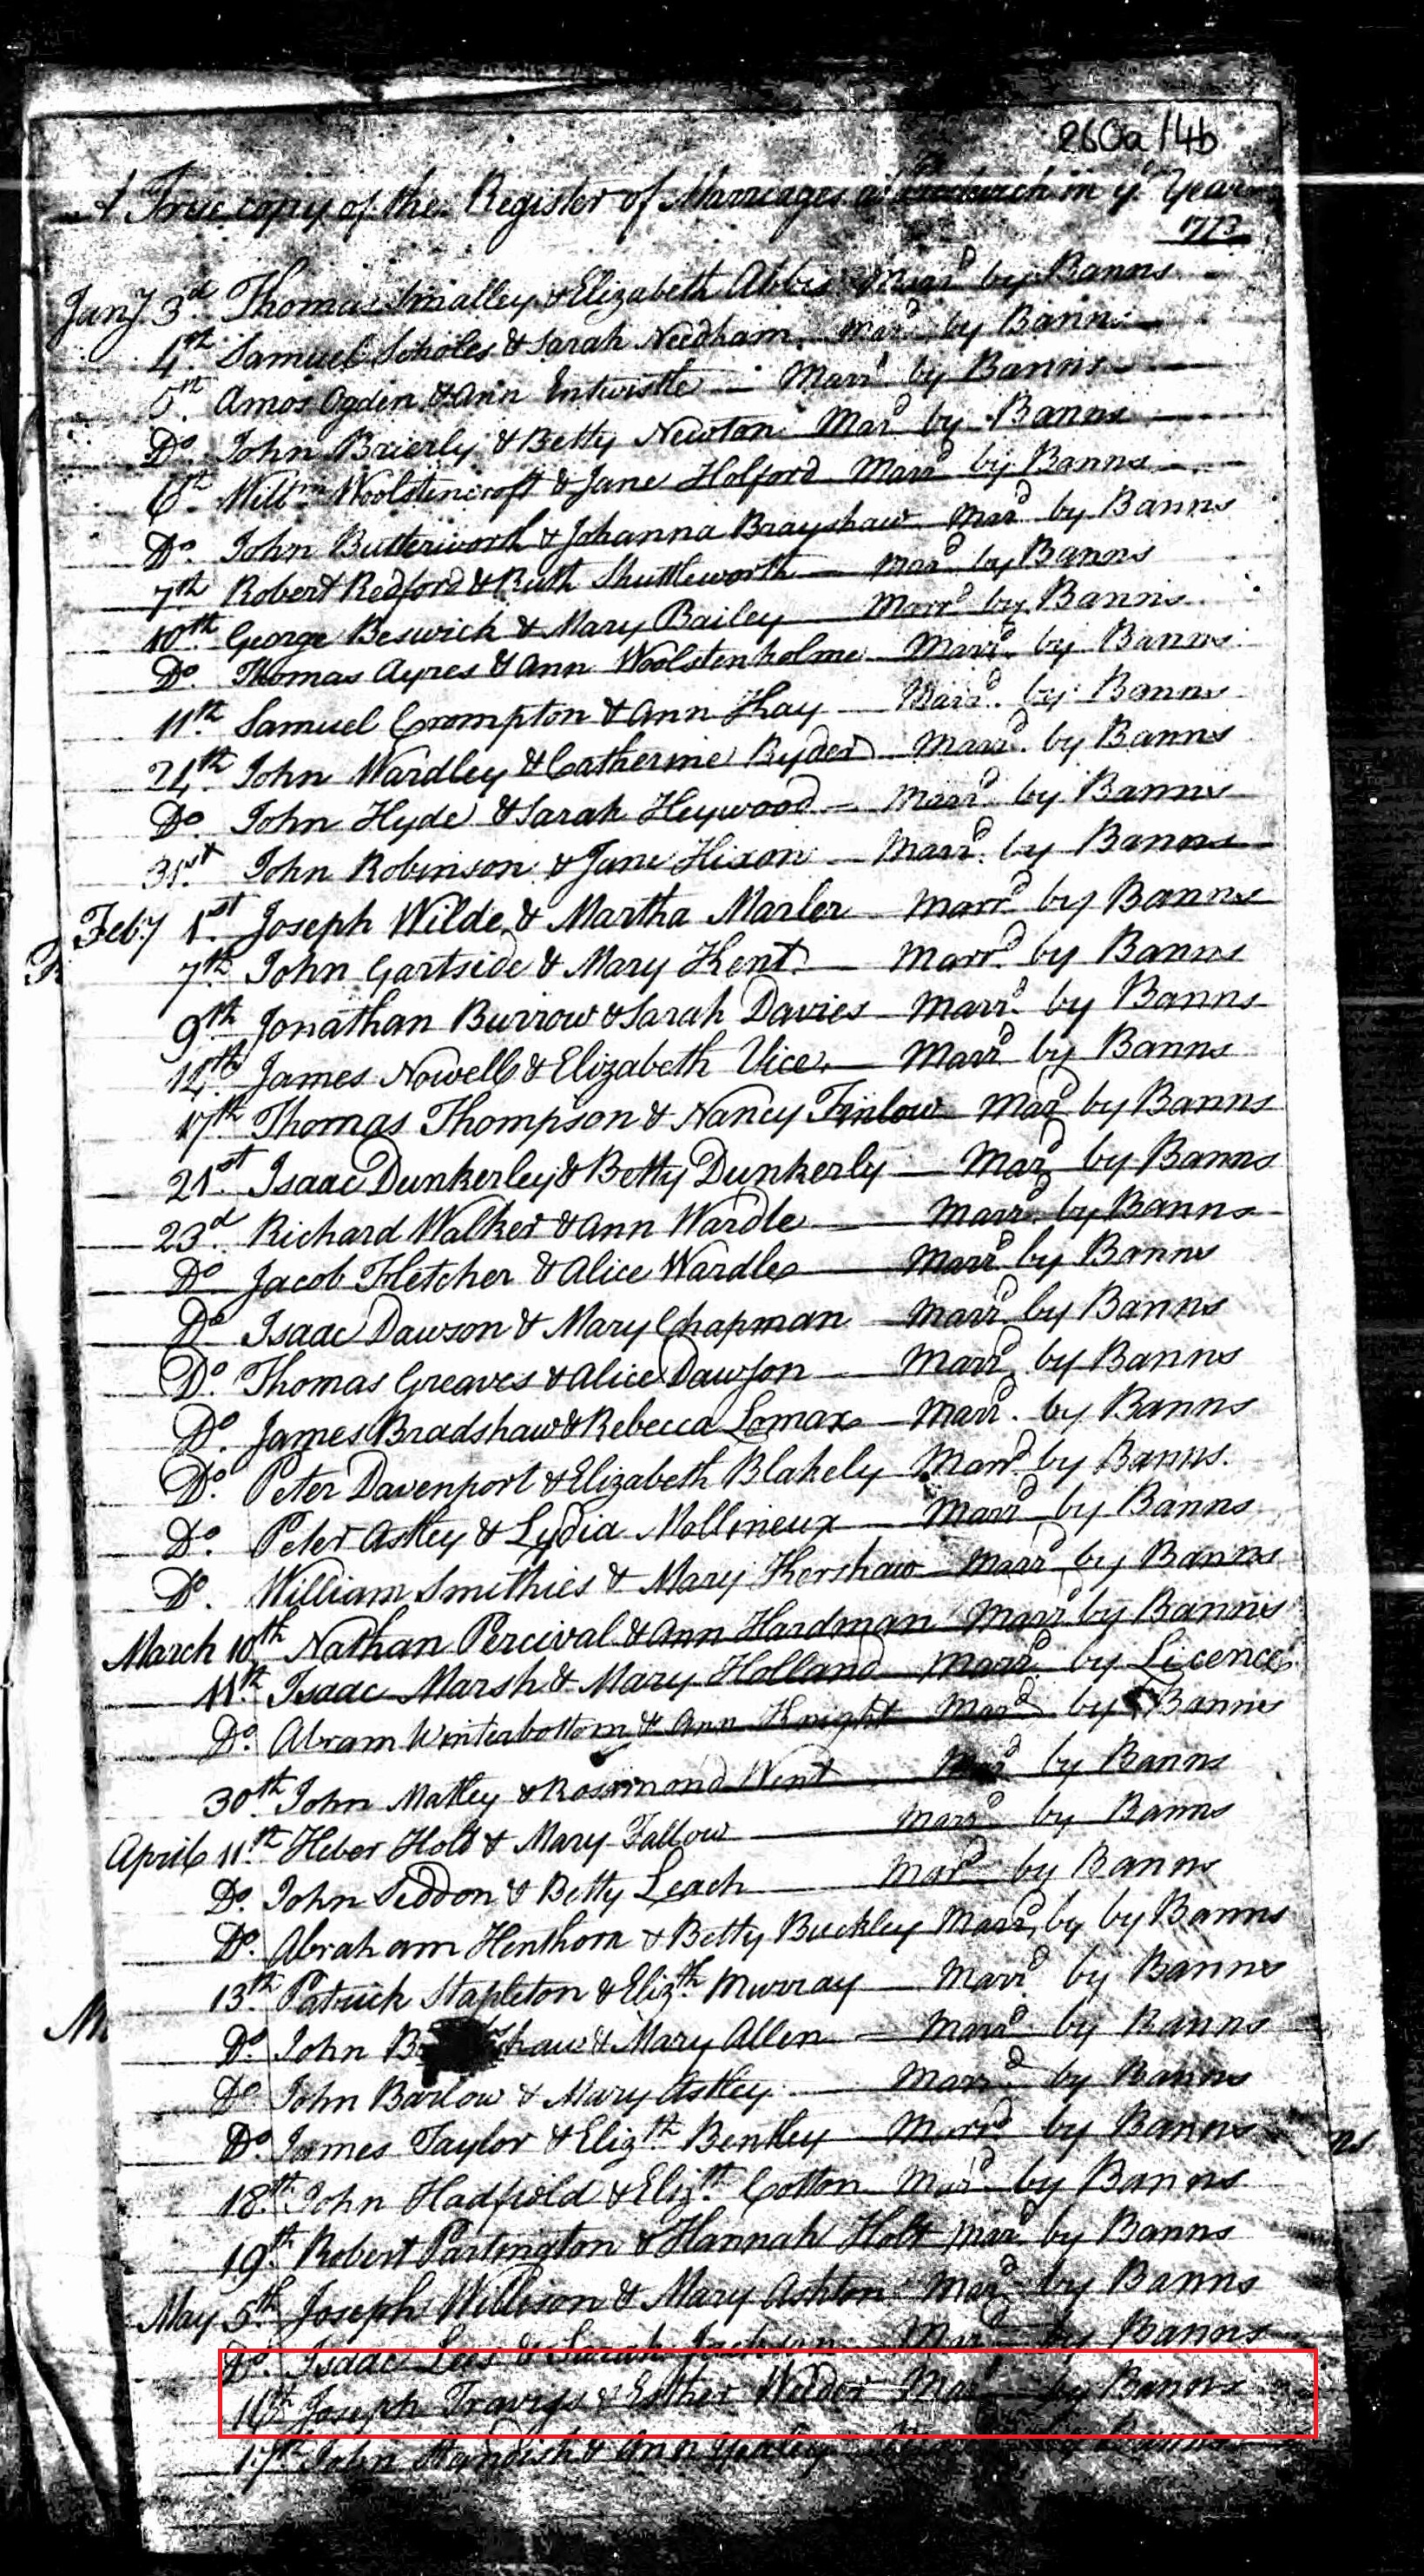 260a/4b
A True copy of the Register of Marriages at Prestwich in ye. Year
1773
Jany. 3d. Thomas Smalley & Elizabeth Abbis Marrd by Banns
4th. Samuel Scholes & Sarah Needham Mard by Banns
5th. Amos Ogden & Ann Entwistle Marrd. by Banns
Do. John Brierly & Betty Newton Mard by Banns
6th. Willm Woolstencroft & Jane Holford Marrd by Banns
Do. John Butterworth & Johanna Brayshaw Mard by Banns
7th Robert Redford & Ruth Shuttleworth Mard by Banns
10th. George Beswick & Mary Bailey Marrd by Banns
Do. Thomas Ayres & Ann Woolstenholme Marrd. by Banns
11th. Samuel Crompton & Ann Kay Marrd. by Banns
24th. John Wardley & Catherine Ryder Marrd. by Banns
Do. John Hyde & Sarah Heywood Marrd by Banns
31st. John Robinson & Jane Hixon Marrd. by Banns
Feby 1st. Joseph Wilde & Martha Marler Marrd by Banns
7th. John Gartside & Mary Kent. Marrd. by Banns
9th Jonathan Burrow & Sarah Davies Marrd. by Banns
14th. James Nowell & Elizabeth Vice Marrd by Banns
17th Thomas Thompson & Nancy Finlow Mard by Banns
21st. Isaac Dunkerley & Betty Dunkerly Mard by Banns
23d. Richard Walker & Ann Wardle Marrd. by Banns
Do Jacob Fletcher & Alice Wardle Marrd by Banns
Do Isaac Dawson & Mary Chapman Marrd by Banns
Do. Thomas Greaves & Alice Dawson Marrd by Banns
Do. James Bradshaw & Rebecca Lomax Marrd. by Banns
Do. Peter Davenport & Elizabeth Blakely Marrd by Banns.
Do. Peter Astley & Lydia Mollineux Marrd by Banns
Do. William Smithies & Mary Kershaw Marrd by Banns
March 10th Nathan Percival & Ann Hardman Marrd by Banns
11th. Isaac Marsh & Mary Holland Marrd. by Licence
Do. Abram Winterbottom & Ann Knight Mard by Banns
30th. John Matley & Rosimond Went Mard by Banns
April 11th. Heber Holt & Mary Fallow Marrd by Banns
Do. John Seddon & Betty Leach Mard by Banns
Do. Abraham Henthorn & Betty Buckley Marrd by by Banns
13th. Patrick Stapleton & Elizth Murray Marrd. by Banns
Do. John B haw & Mary Allen Marrd by Banns
Do John Barlow & Mary Astley Marrd by Banns
Do. James Taylor & Elizth Bentley Marrd by Banns
18th. John Hadfield & Elizth. Cotton Mard. by Banns
19th. Robert Partington & Hannah Holt Mard by Banns
May 5th Joseph Willison & Mary Ashton Mard by Banns
Do. Isaac Lees & Sarah Jackson Mard by Banns
16th Joseph Traviss & Esther by Banns
17th John & Ann